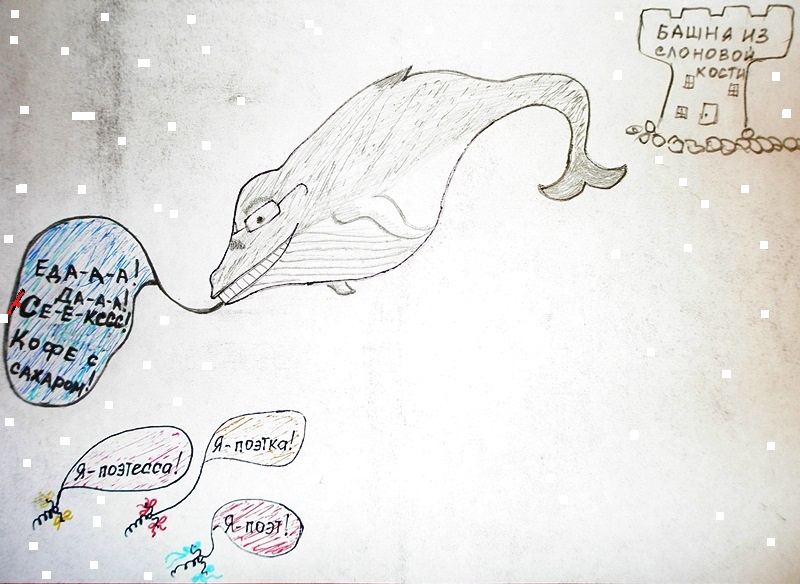 БАШНЯ ИЗ
СЛОНОВОЙ
КОСТИ
ЕДА-А-А!
ДА-А-А!
СЕ-Е-КССС!
КОФЕ С
САХАРОМ!
Я-поэтесса!
Я-поэтка!
Я-поэт!